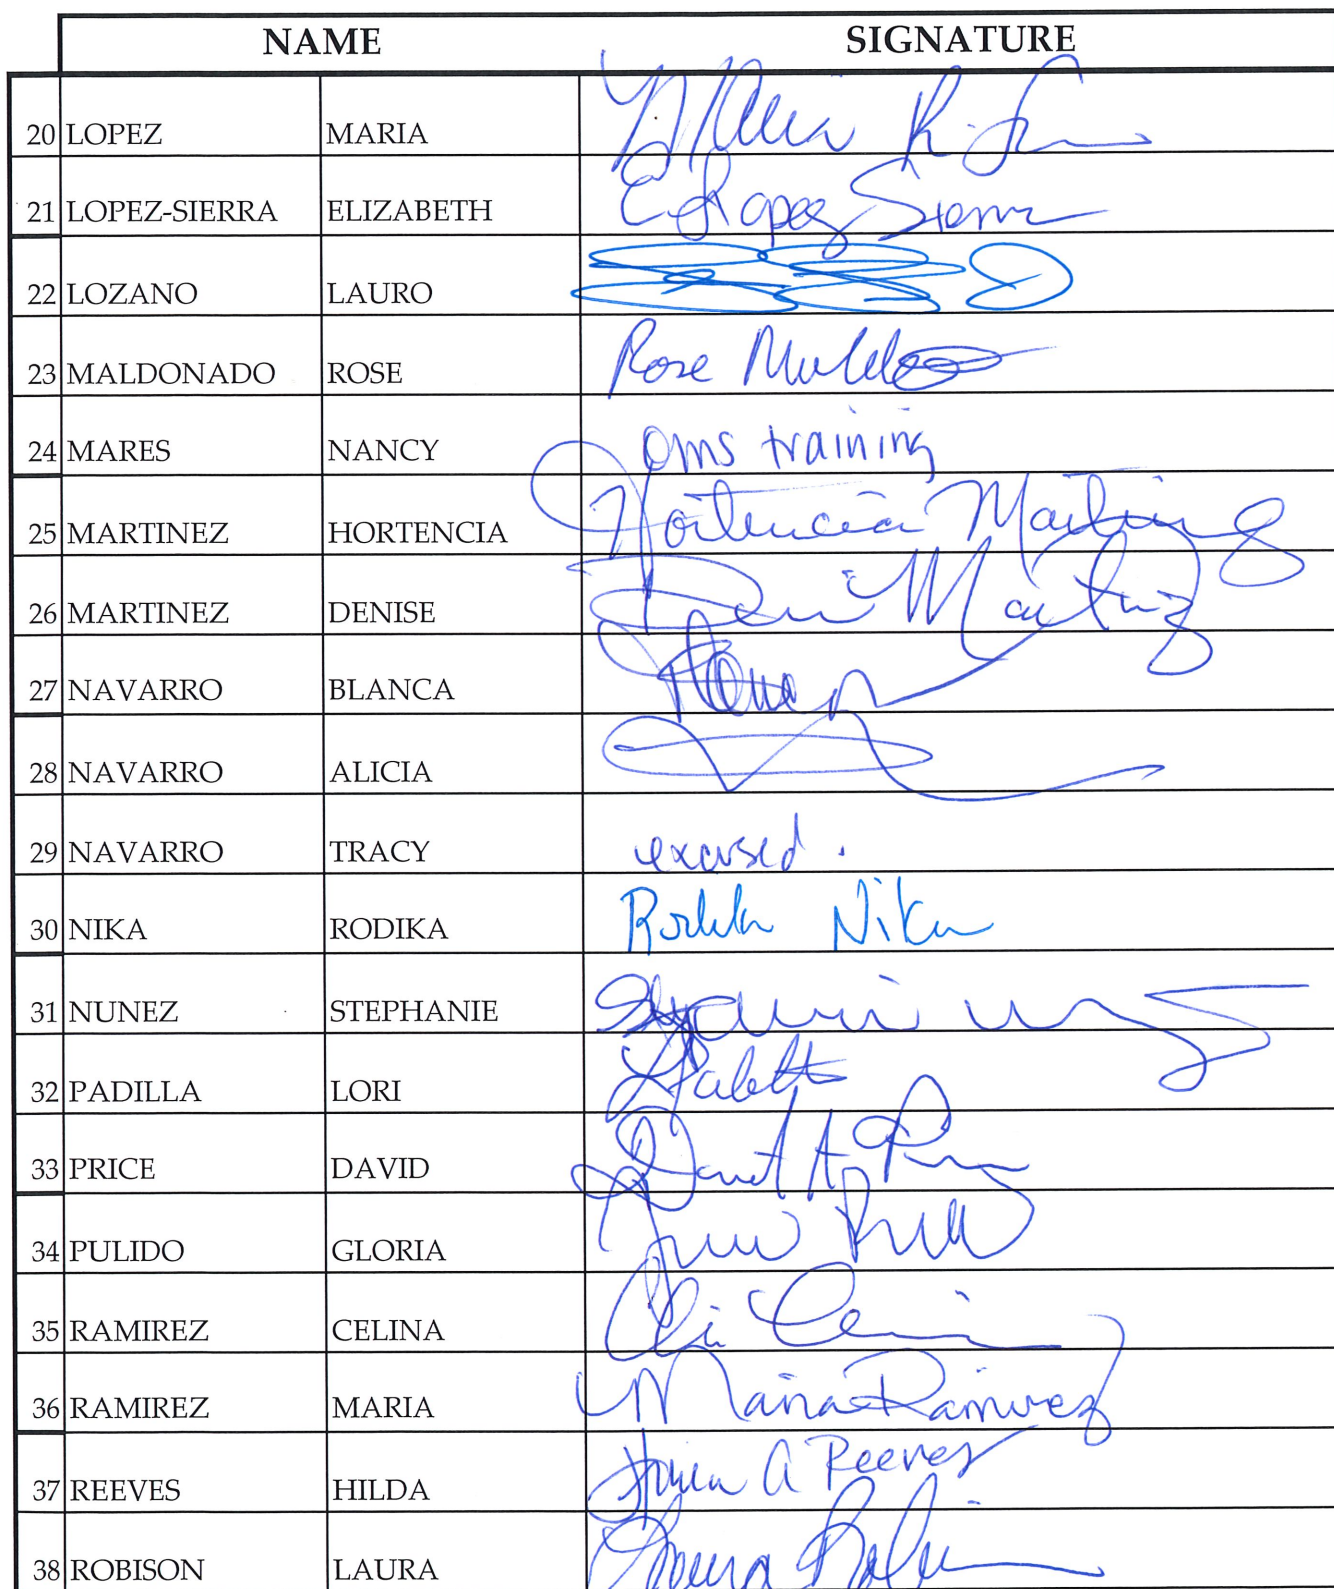 NAME SIGNATURE
20 LOPEZ MARIA Maria R.
21 LOPEZ-SIERRA ELIZABETH E Lopez Sierra
22 LOZANO LAURO
23 MALDONADO ROSE Rose
24 MARES NANCY oms training
25 MARTINEZ HORTENCIA Hortencia Martinez
26 MARTINEZ DENISE Martinez
27 NAVARRO BLANCA
28 NAVARRO ALICIA
29 NAVARRO TRACY excused.
30 NIKA RODIKA Rodika Nika
31 NUNEZ STEPHANIE
32 PADILLA LORI
33 PRICE DAVID David A.
34 PULIDO GLORIA
35 RAMIREZ CELINA
36 RAMIREZ MARIA Maria Ramirez
37 REEVES HILDA A Reeves
38 ROBISON LAURA Laura